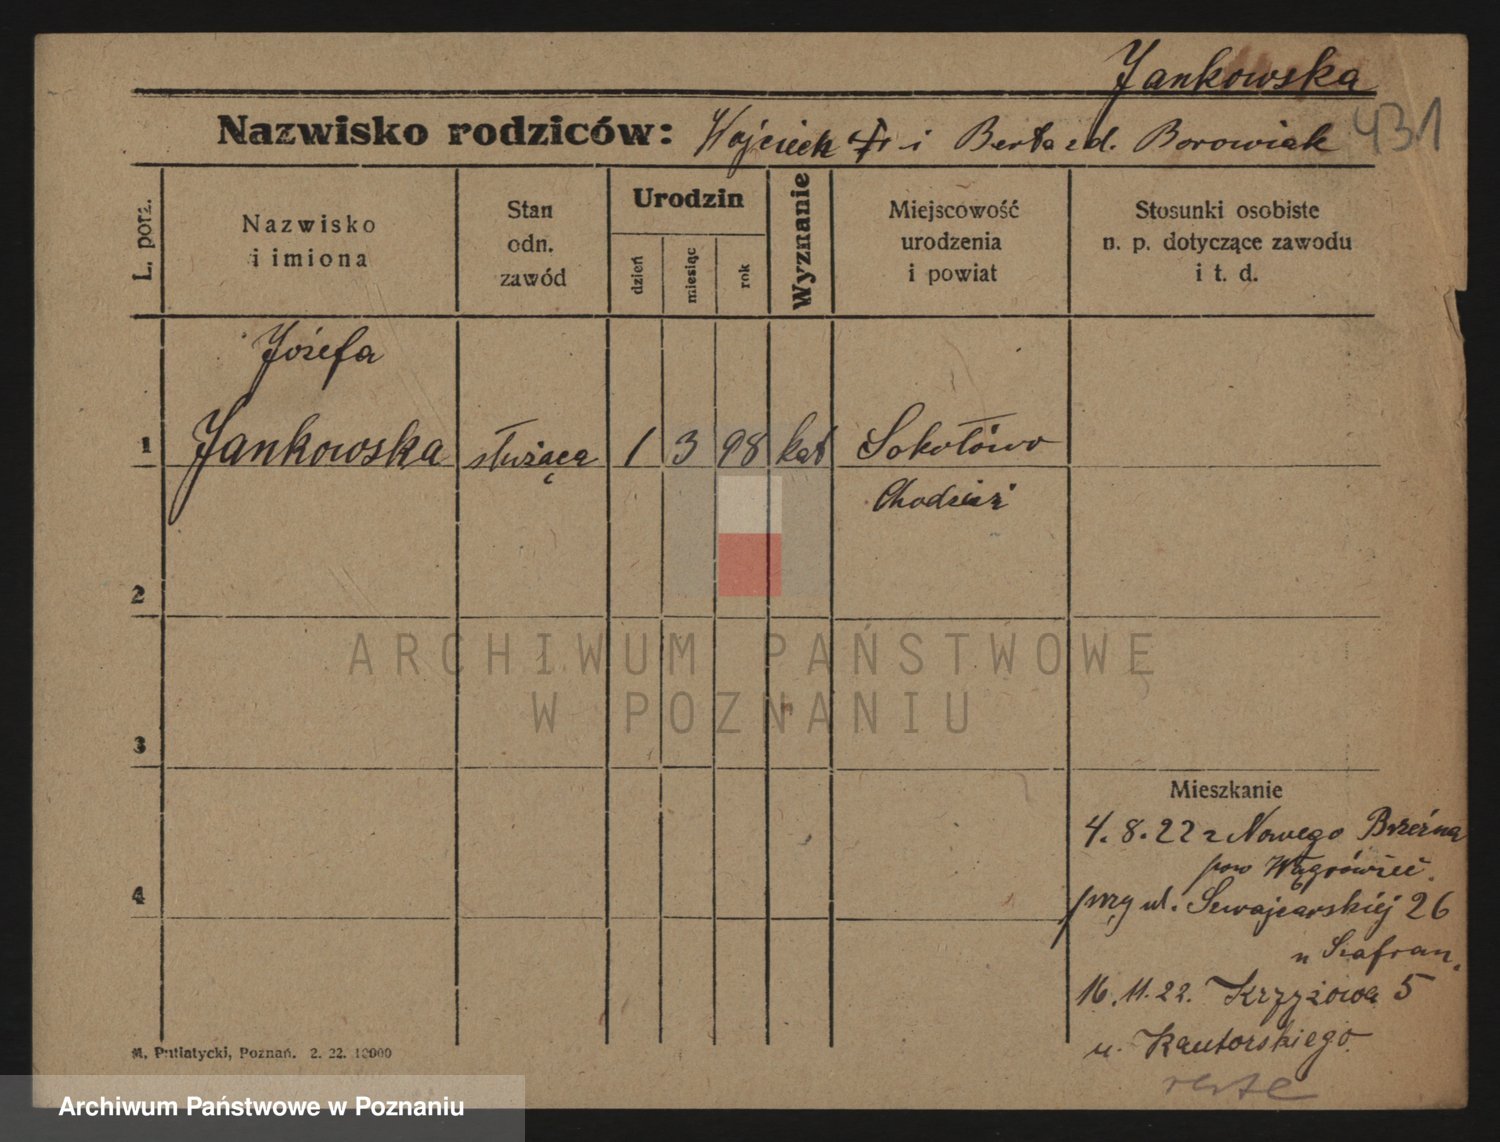 Jankowska
Nazwisko rodziców: Wojciech i Berta zd. Borowiak 431
L. porz.
Nazwisko
i imiona
Stan
odn.
zawód
Urodzin
dzień
miesiąc
rok
Wyznanie
Miejscowość
urodzenia
i powiat
Stosunki osobiste
n. p. dotyczące zawodu
i t. d.
Józefa
1 Jankowska służąca 1 3 98 kat Sokołowo
Chodzież
2
3
4
ARCHIWUM PAŃSTWOWE
W POZNANIU
Mieszkanie
4.8.22 z Nowego Brzeźna
pow Wągrówiec.
przy ul. Szwajcarskiej 26
u Szafran.
16.11.22. Krzyżowa 5
u. Kautorskiego
M. Putiatycki, Poznań. 2. 22. 10000
Archiwum Państwowe w Poznaniu